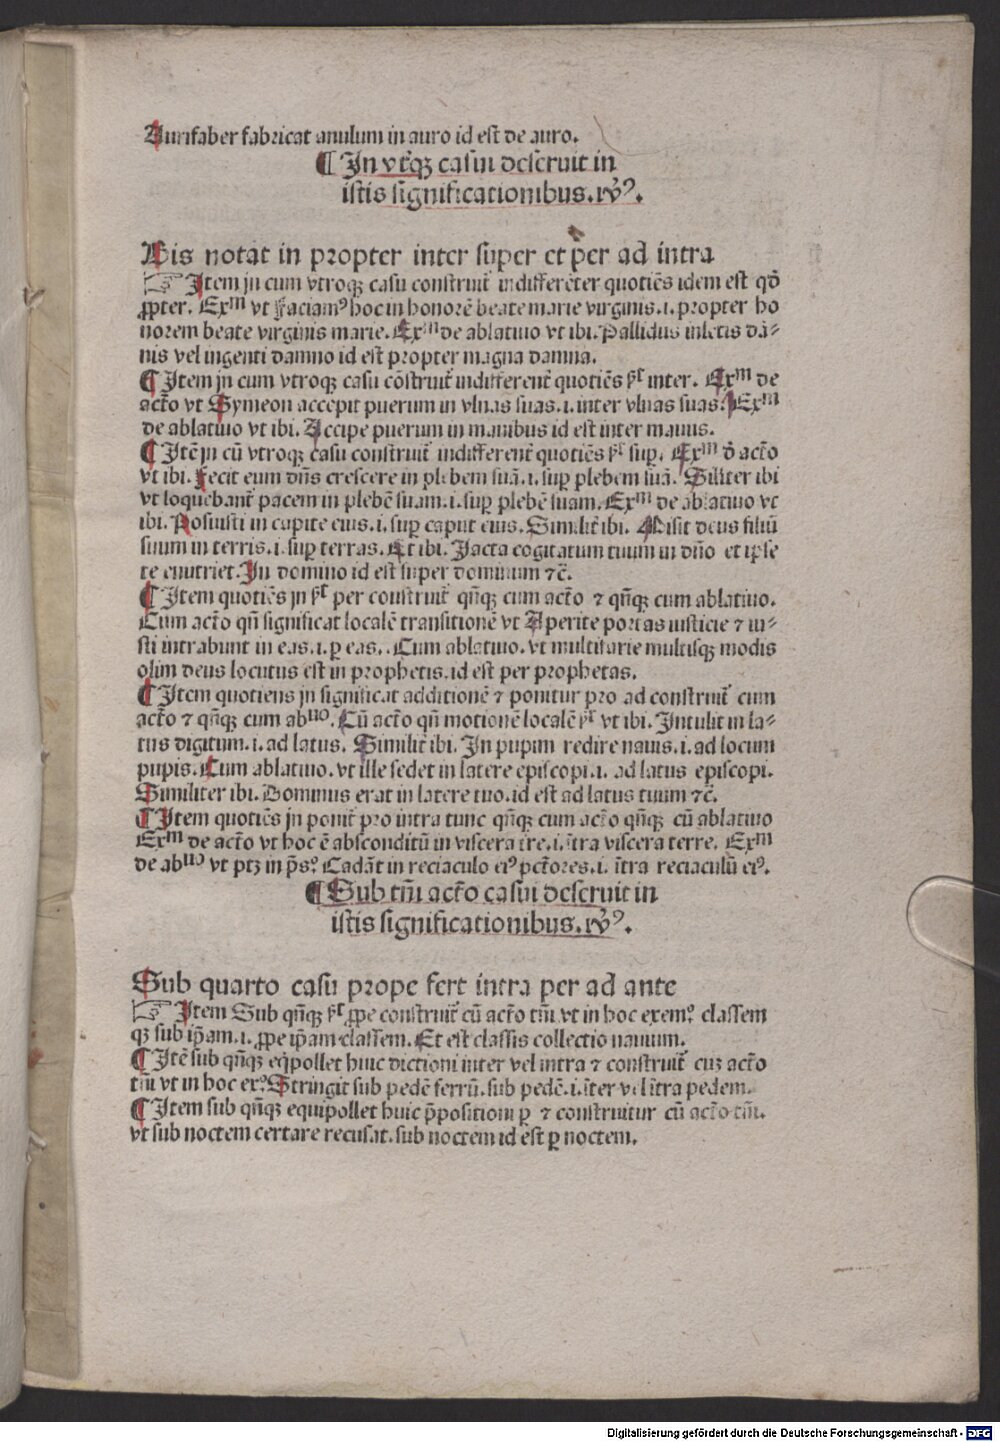 Aurifaber fabricat anulum in auro id est de auro.
¶ In vtrq̃ casui deseruit in
istis significationibus. rẏꝰ.
His notat in propter inter super et per ad intra
☞ Item jn cum vtroqꝫ casu construit̉ indifferẽter quotiẽs idem est qđ
ꝓpter. Exᵐ vt Faciamꝰ hoc in honorẽ beate marie virginis .i. propter ho
norem beate virginis marie. Exᵐ de ablatiuo vt ibi. Pallidus in letis dã⸗
nis vel ingenti damno id est propter magna damna.
¶ Item jn cum vtroqꝫ casu cõstruit̉ indifferent̉ quotiẽs inter. Exᵐ de
actõ vt Symeon accepit puerum in vlnas suas .i. inter vlnas suas. Exᵐ
de ablatiuo vt ibi. Accipe puerum in manibus id est inter manus.
¶ Itẽ jn cũ vtroqꝫ casu construit̉ indifferent̉ quotiẽs suꝑ. Exᵐ đ actõ
vt ibi. Fecit eum dñs crescere in plebem suã .i. suꝑ plebem suã. Siłiter ibi
vt loquebant̉ pacem in plebẽ suam .i. suꝑ plebẽ suam. Exᵐ de ablatiuo vt
ibi. Posuisti in capite eius .i. suꝑ caput eius. Similit̉ ibi. Misit deus filiũ
suum in terris .i. suꝑ terras. Et ibi. Jacta cogitatum tuum in dño et ipse
te enutriet. In domino id est super dominum ⁊c̃.
¶ Item quotiẽs jn per construit̉ qñqꝫ cum actõ ⁊ qñqꝫ cum ablatiuo.
Cum actõ qñ significat localẽ transitionẽ vt Aperite portas iusticie ⁊ iu⸗
sti intrabunt in eas .i. ꝑ eas. Cum ablatiuo. vt multifarie multisqꝫ modis
olim deus locutus est in prophetis. id est per prophetas.
¶ Item quotiens jn significat additionẽ ⁊ ponitur pro ad construit̉ cum
actõ ⁊ qñqꝫ cum abᵘᵒ. Cũ actõ qñ motionẽ localẽ vt ibi. Intulit in la⸗
tus digitum .i. ad latus. Similit̉ ibi. In pupim redire nauis .i. ad locum
pupis. Cum ablatiuo. vt ille sedet in latere episcopi .i. ad latus episcopi.
Similiter ibi. Dominus erat in latere tuo. id est ad latus tuum ⁊c̃.
¶ Item quotiẽs jn ponit̉ pro intra tunc qñqꝫ cum actõ qñqꝫ cũ ablatiuo
Exᵐ de actõ vt hoc ẽ absconditũ in viscera tre .i. ĩtra viscera terre. Exᵐ
de abᵘᵒ vt ptꝫ in p̃sꝰ. Cadãt in reciaculo eiꝰ pctõres .i. ĩtra reciaculũ eiꝰ.
¶ Sub tm̃ actõ casui deseruit in
istis significationibus. rẏꝰ.
Sub quarto casu prope fert intra per ad ante
☞ Item Sub qñqꝫ ꝓpe construit̉ cũ actõ tm̃. vt in hoc exemꝰ. classem
qꝫ sub ip̃am .i. ꝓpe ip̃am classem. Et est classis collectio nauium.
¶ Itẽ sub qñqꝫ eq̃pollet huic dictioni inter vel intra ⁊ construit̉ cuꝫ actõ
tm̃ vt in hoc exꝰ. Stringit sub pedẽ ferrũ. sub pedẽ .i. ĩter vel ĩtra pedem.
¶ Item sub qñqꝫ equipollet huic p̃positioni ꝑ ⁊ construitur cũ actõ tm̃.
vt sub noctem certare recusat. sub noctem id est ꝑ noctem.
Digitalisierung gefördert durch die Deutsche Forschungsgemeinschaft - DFG